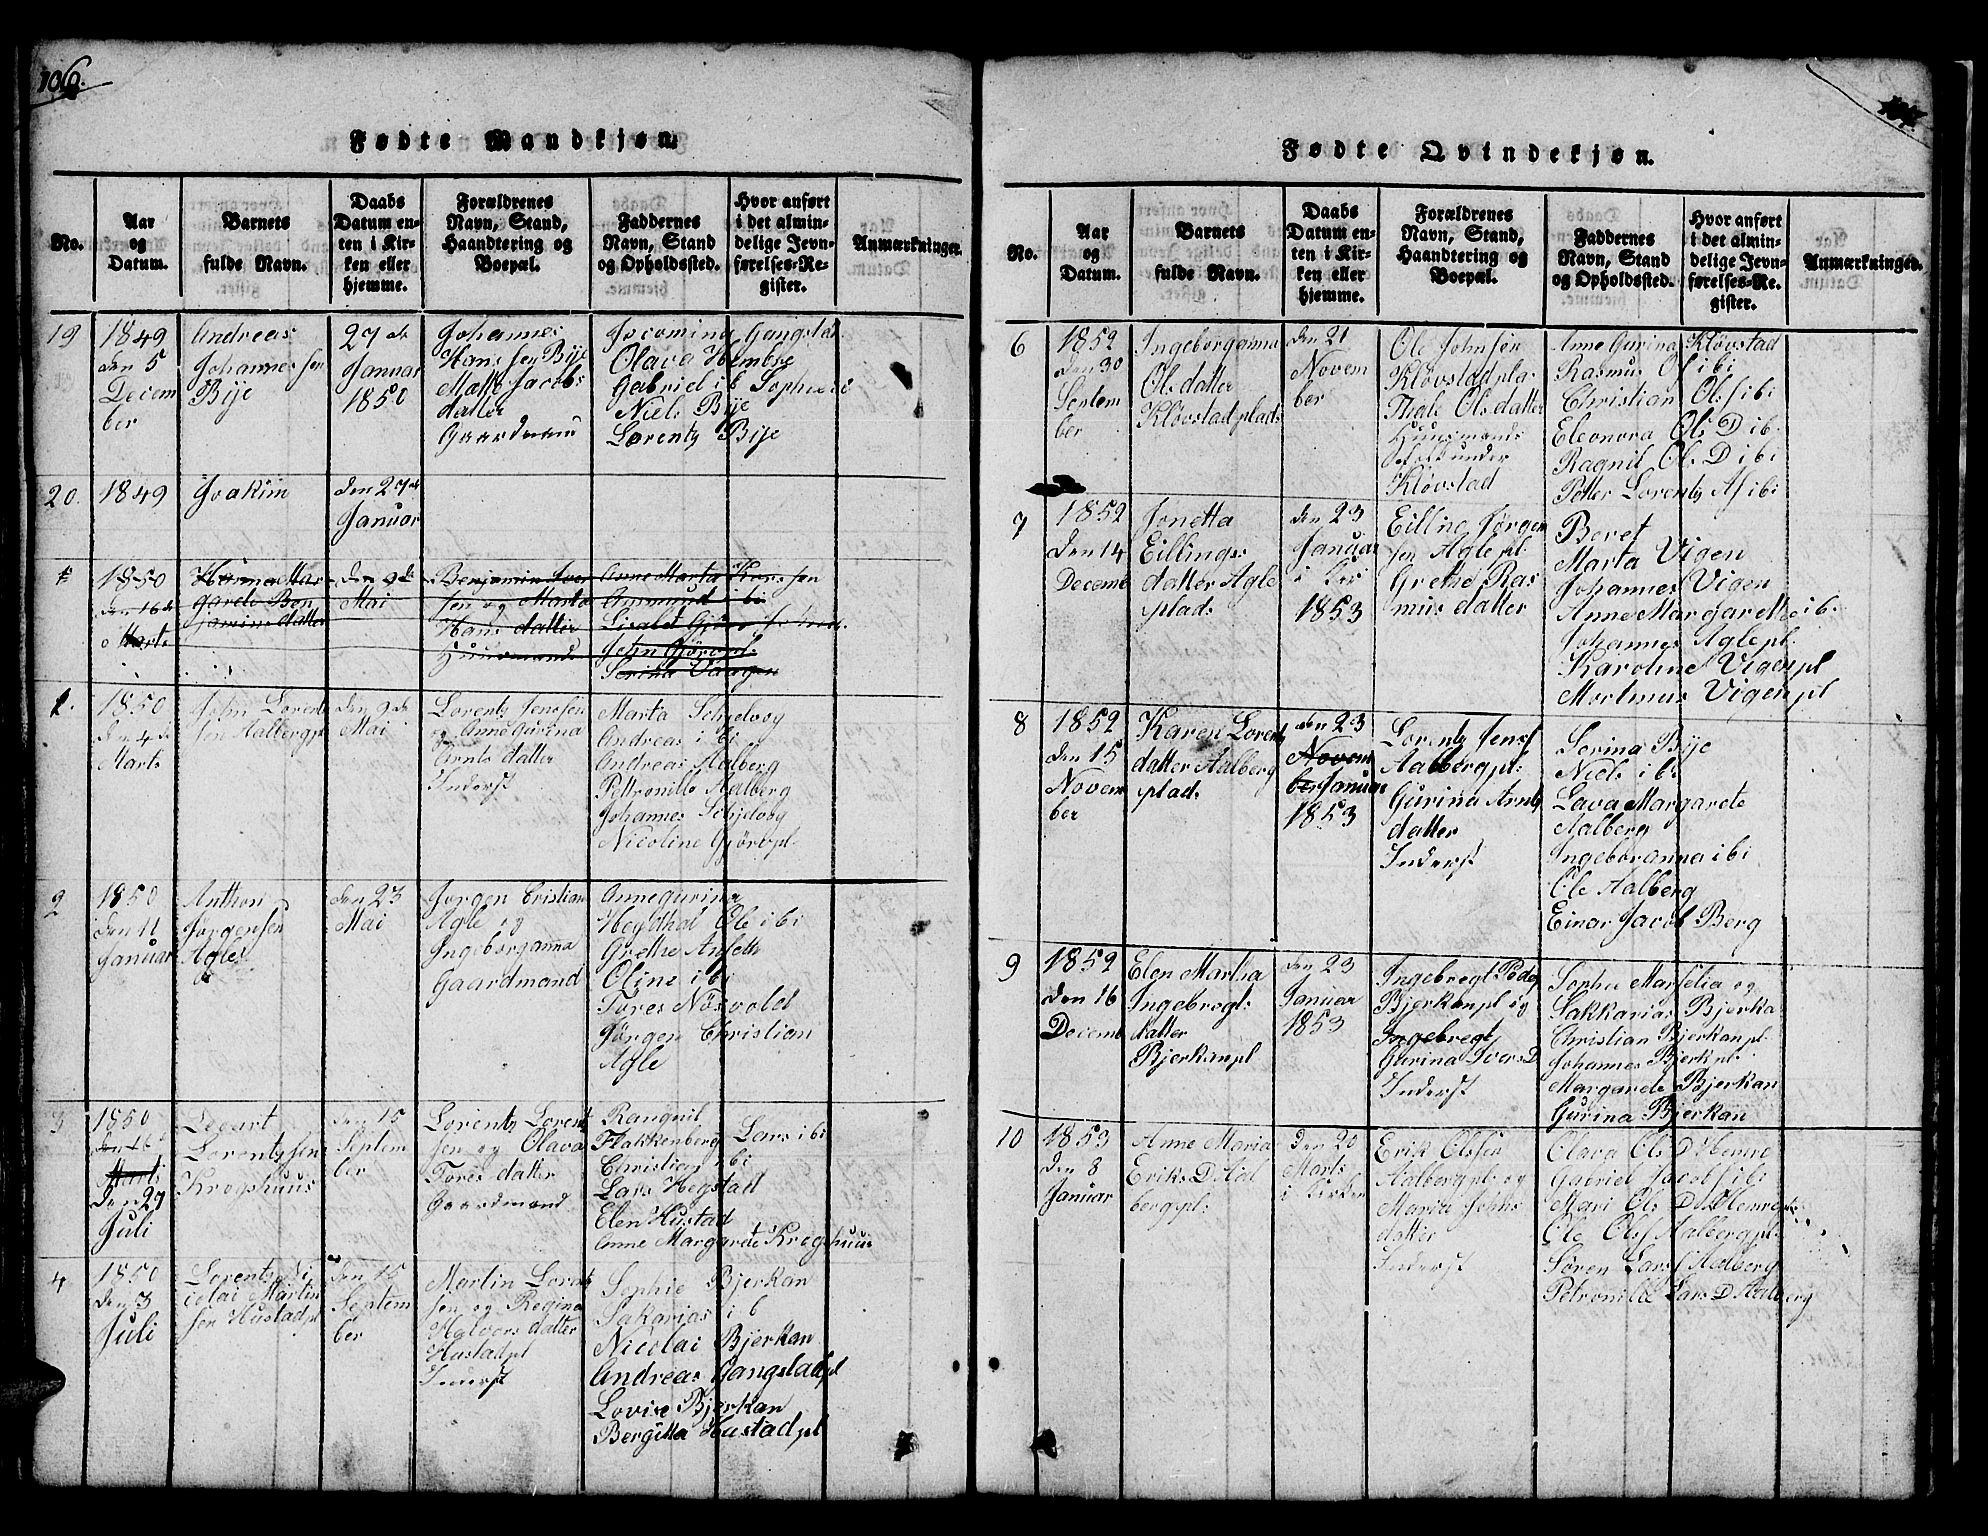 106.
Fødte Mandkjøn.
No.
Aar
og
Datum.
Barnets
fulde Navn.
Daabs
Datum en-
ten i Kir-
ken eller
hjemme.
Forældrenes
Navn, Stand,
Haandtering og
Boepæl.
Faddernes
Navn, Stand
og Opholdssted.
Hvor anført
i det almin-
delige Jevn-
førelses-Re-
gister.
Anmærkninger.
19
1849
den 5
Decem
ber
Andreas
Johannessen
Bye
27de
Januar
1850
Johannes
Hanssen Bye
Jacobs
datter
Gaardmand
Jocomina Gangstad
Olava Hembre
Gabriel ib Sophie ib
Niels Bye
Lorentz Bye
20.
1849
Joakim
den 27de
Januar
1850
den 16de
Marts
Hanna Mar
garete Ben
jamins datter
den 9de
Mai
Benjamin Iver
sen og Marta
Hans datter
Huusmand
Anne Marta
Amund ibi
Lisabet
John Gjörvpl.
Serina Vangen
1.
1850
den 4de
Marts
John Lorentz
sen Aalbergpl
den 9de
Mai
Lorentz Jenssen
og Anne Gurina
Arnts datter
Inderst
Marta Schjelvog
Andreas ibi
Andreas Aalberg
Pettronille Aalberg
Johannes Schjelvog
Nicoline Gjörvpl.
2
1850
den 11
Januar
Anthon
Jørgensen
Agle
den 23
Mai
Jørgen Cristian
Agle og
Ingeborganna
Gaardmand
Annegurina
Heydthal Ole ibi
Grethe
Oline ibi
Tores Nösvold
Jørgen Christian
Agle
3
1850
den 16
Marts
den 27
Juli
Lorentzsen
Krogshuus
den 15
Septem
ber
Lorentz Lorentz
sen og Olava
Tores datter
Gaardmand
Ranqnil
Flakkenberg Lars ibi
Christian ibi
Lars Hegstad
Elen Hustad
Anne Margarete Krogshuus
4
1850
den 3
Juli
Lorentz Ni
colai Martin
sen Hustadpl
den 15
Septem
ber
Martin Lorentz
sen og Regina
Halvors datter
Hustadpl
Inderst
Sophie Bjerkan
Sakarias i b
Nicolai Bjerkan
Andreas Gangstadpl
Lovise Bjerkan
Bergitta Hustadpl
Fødte Qvindekjøn.
No.
Aar
og
Datum.
Barnets
fulde Navn.
Daabs
Datum en-
ten i Kir-
ken eller
hjemme.
Forældrenes
Navn, Stand,
Haandtering og
Boepæl.
Faddernes
Navn, Stand
og Opholdssted.
Hvor anført
i det almin-
delige Jevn-
førelses-Re-
gister.
Anmærkninger.
6
1852
den 30
Septem
ber
Ingeborganna
Ols datter
Klövstadplads
den 21
Novem
ber
Ole Johnsen
Klövstadpla
Ols datter
Huusmands
folk under
Klövstad
Anne Gurina Klövstad
Rasmus Ols ibi
Christian Ols ibi
Eleonora Ols D ib.
Ragnil Ols D ibi
Petter Lorentz ibi
7
1852
den 14
Decemb
Jonetta
Eillings
datter Agle
plads
den 23
Januar
i Kir
1853
Eiling Jørgen
sen Aglepl.
Grethe Ras
mus datter
Beret
Marta Vigen
Johannes Vigen
Anne Margarethe ib.
Johannes Aglepl.
Karoline Vigenpl
Mortmus Vigenpl
8
1852
den 15
Novem
ber
Karen Lorentz
datter Aalberg
plads
den 23
Novem
ber Januar
1853
Lorentz Jens
Aalbergpl.
Gurina Arntz
datter
Inderst
Serina Bye
Niels ibi
Lava Margarete
Aalberg
Ingeboranna ibi
Ole Aalberg
Einar Jacob Berg
9
1852
den 16
Decemb
Elen Martha
Ingebregt
datter
Bjerkanpl
den 23
Januar
1853
Ingebregt Peder
Bjerkanpl og
Ingebregt
Gurina Ivers D
Inderst
Sophie Marselia og
Sakkarias Bjerka
Christian Bjerkanpl.
Johannes Bjerkpl.
Margarete Bjerkan
Gurina Bjerkan
10
1853
den 8
Januar
Anne Maria
Eriks D Aal
bergpl.
den 20
Marts
i Kirken
Erik Olssen
Aalbergpl. og
Maria Johns
datter
Inderst
Olava Ols D Hemre
Gabriel Jacobs ibi
Mari Ols D
Ole Ols Aalbergpl.
Søren Lars Aalberg
Petronille Lars D Aalberg